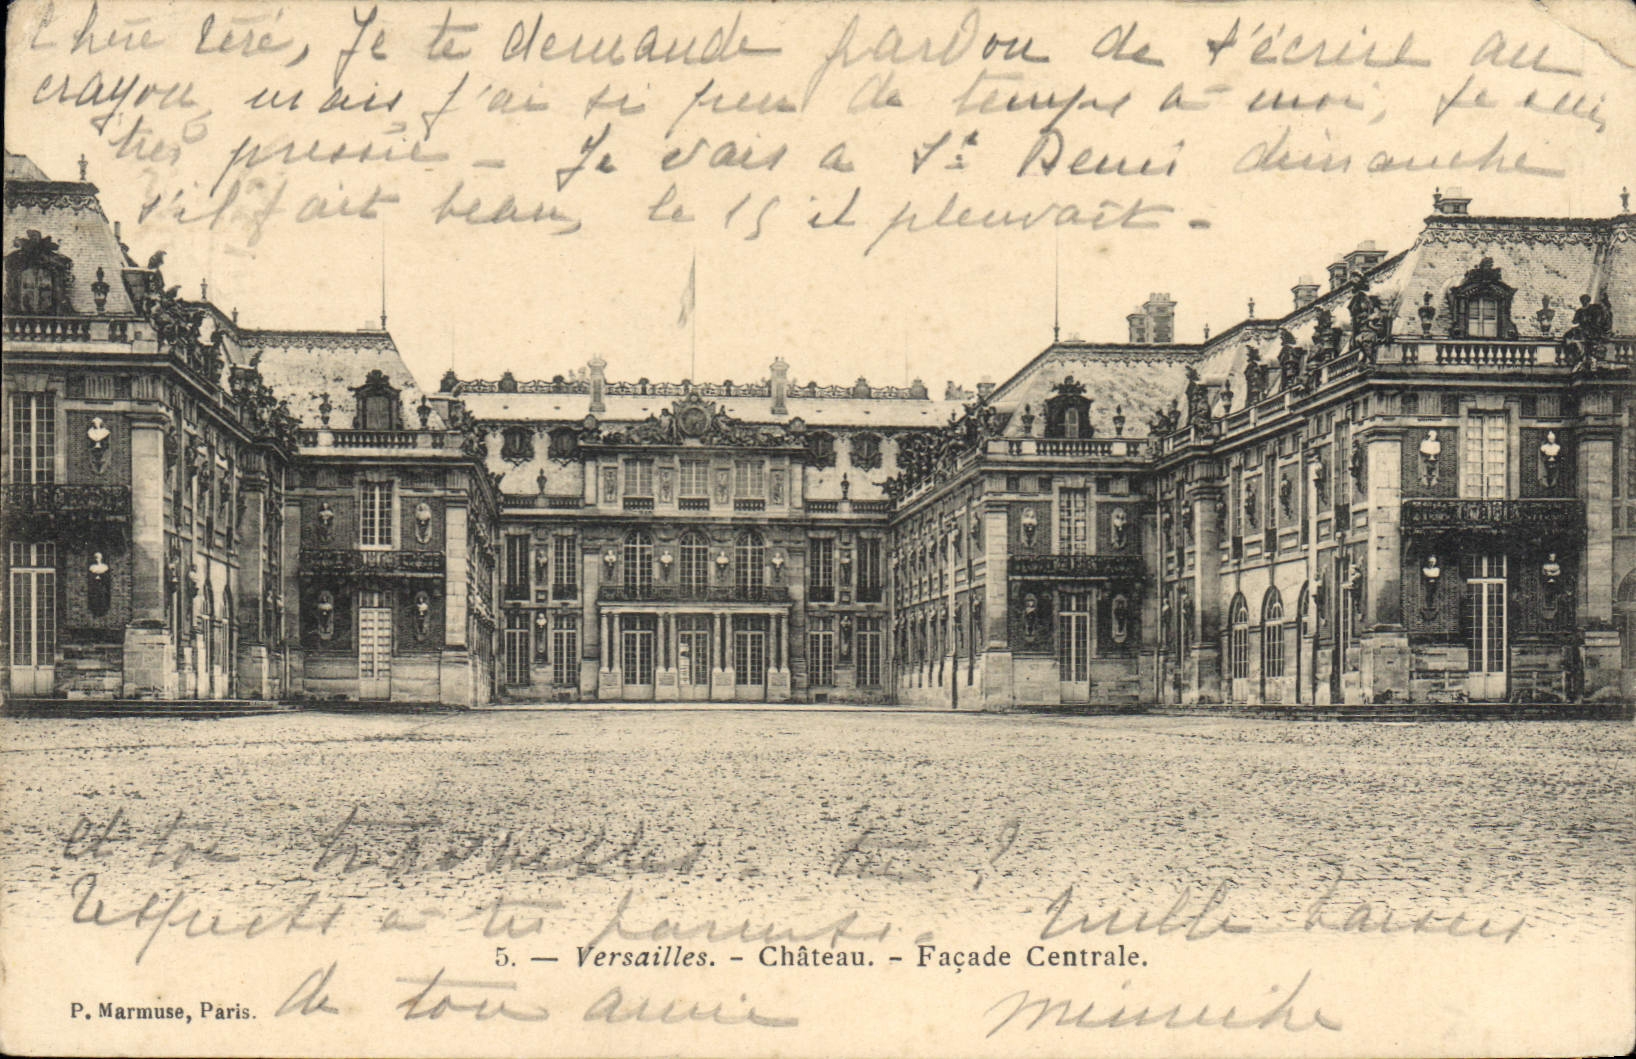 Chère Véré, Je te demande pardon de t'écrire au
crayon, mais j'ai si peu de temps à moi, je suis
très pressée - Je vais à St Denis dimanche
s'il fait beau, le 15 il pleuvait -
et toi travailles-tu ?
Respects à tes parents. Mille baisers
5. — Versailles. - Château. - Façade Centrale.
P. Marmuse, Paris.
de ton amie